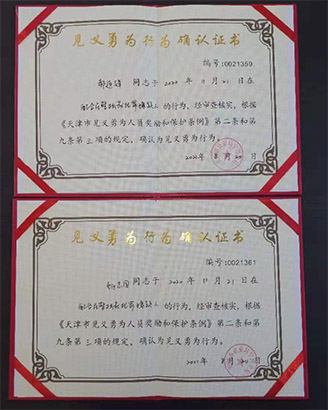 见义勇为行为确认证书
编号:0021359
同志于 2020 年 11 月 21 日在
配合公安抓获犯罪嫌疑人 的行为，经审查核实，根据
《天津市见义勇为人员奖励和保护条例》第二条和第
九条第三项的规定，确认为见义勇为行为。
年 8 月 20 日
见义勇为行为确认证书
编号:0021361
同志于 2020 年 11 月 21 日在
配合公安抓获犯罪嫌疑人 的行为，经审查核实，根据
《天津市见义勇为人员奖励和保护条例》第二条和第
九条第三项的规定，确认为见义勇为行为。
2021 年 8 月 20 日